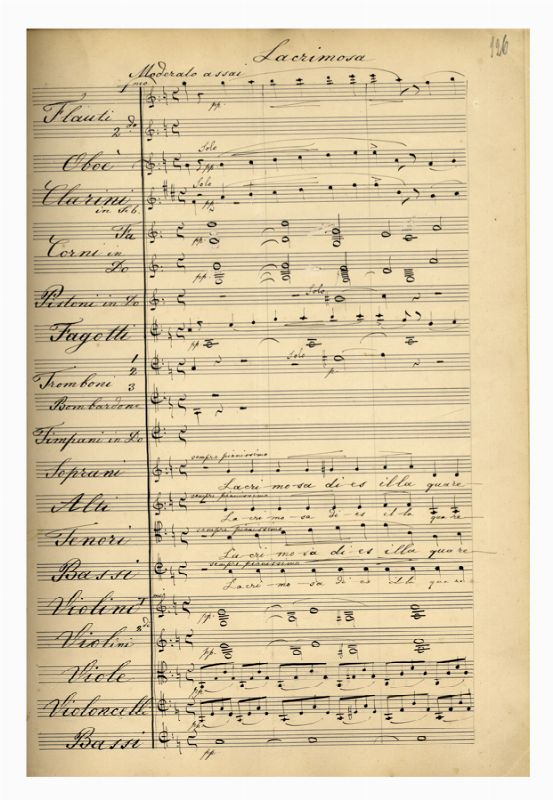 126
Lacrimosa
Moderato assai
1mo
Flauti
2do
pp.
Oboè
Solo
pp.
Clarini
in sib.
Solo
pp
Fa
Corni in
Do
pp.
pp.
Pistoni in Do
Solo
Fagotti
pp.
1
2
Tromboni 3
Solo
p.
Bombardone
Timpani in Do
Soprani
sempre pianissimo
Lacri-mo-sa di-es illa quare
Alti
sempre pianissimo
La-cri-mo-sa di-es il-la qua re
Tenori
sempre pianissimo
La cri mo-sa di es illa qua re
Bassi
sempre pianissimo
La-cri-mo-sa di es il-la qua re
Violini 1mi
pp.
Violini 2di
pp.
Viole
pp.
Violoncelli
pp.
Bassi
pp.